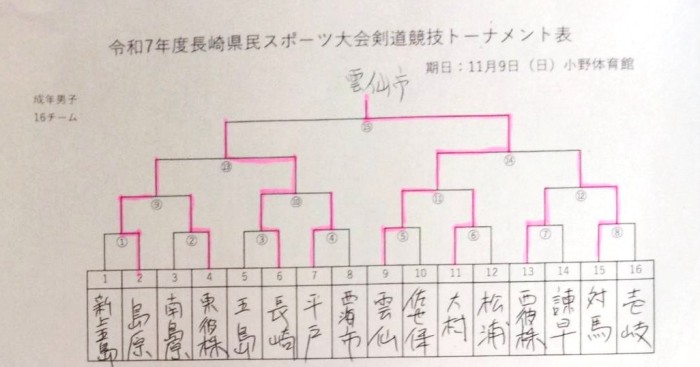 令和7年度長崎県民スポーツ大会剣道競技トーナメント表
期日:11月9日(日)小野体育館
雲仙市
成年男子
16チーム
⑮
⑬ ⑭
⑨ ⑩ ⑪ ⑫
① ② ③ ④ ⑤ ⑥ ⑦ ⑧
1 2 3 4 5 6 7 8 9 10 11 12 13 14 15 16
新上五島 島原 南島原 東彼杵 五島 長崎 平戸 西海市 雲仙 佐世保 大村 松浦 西彼杵 諫早 対馬 壱岐